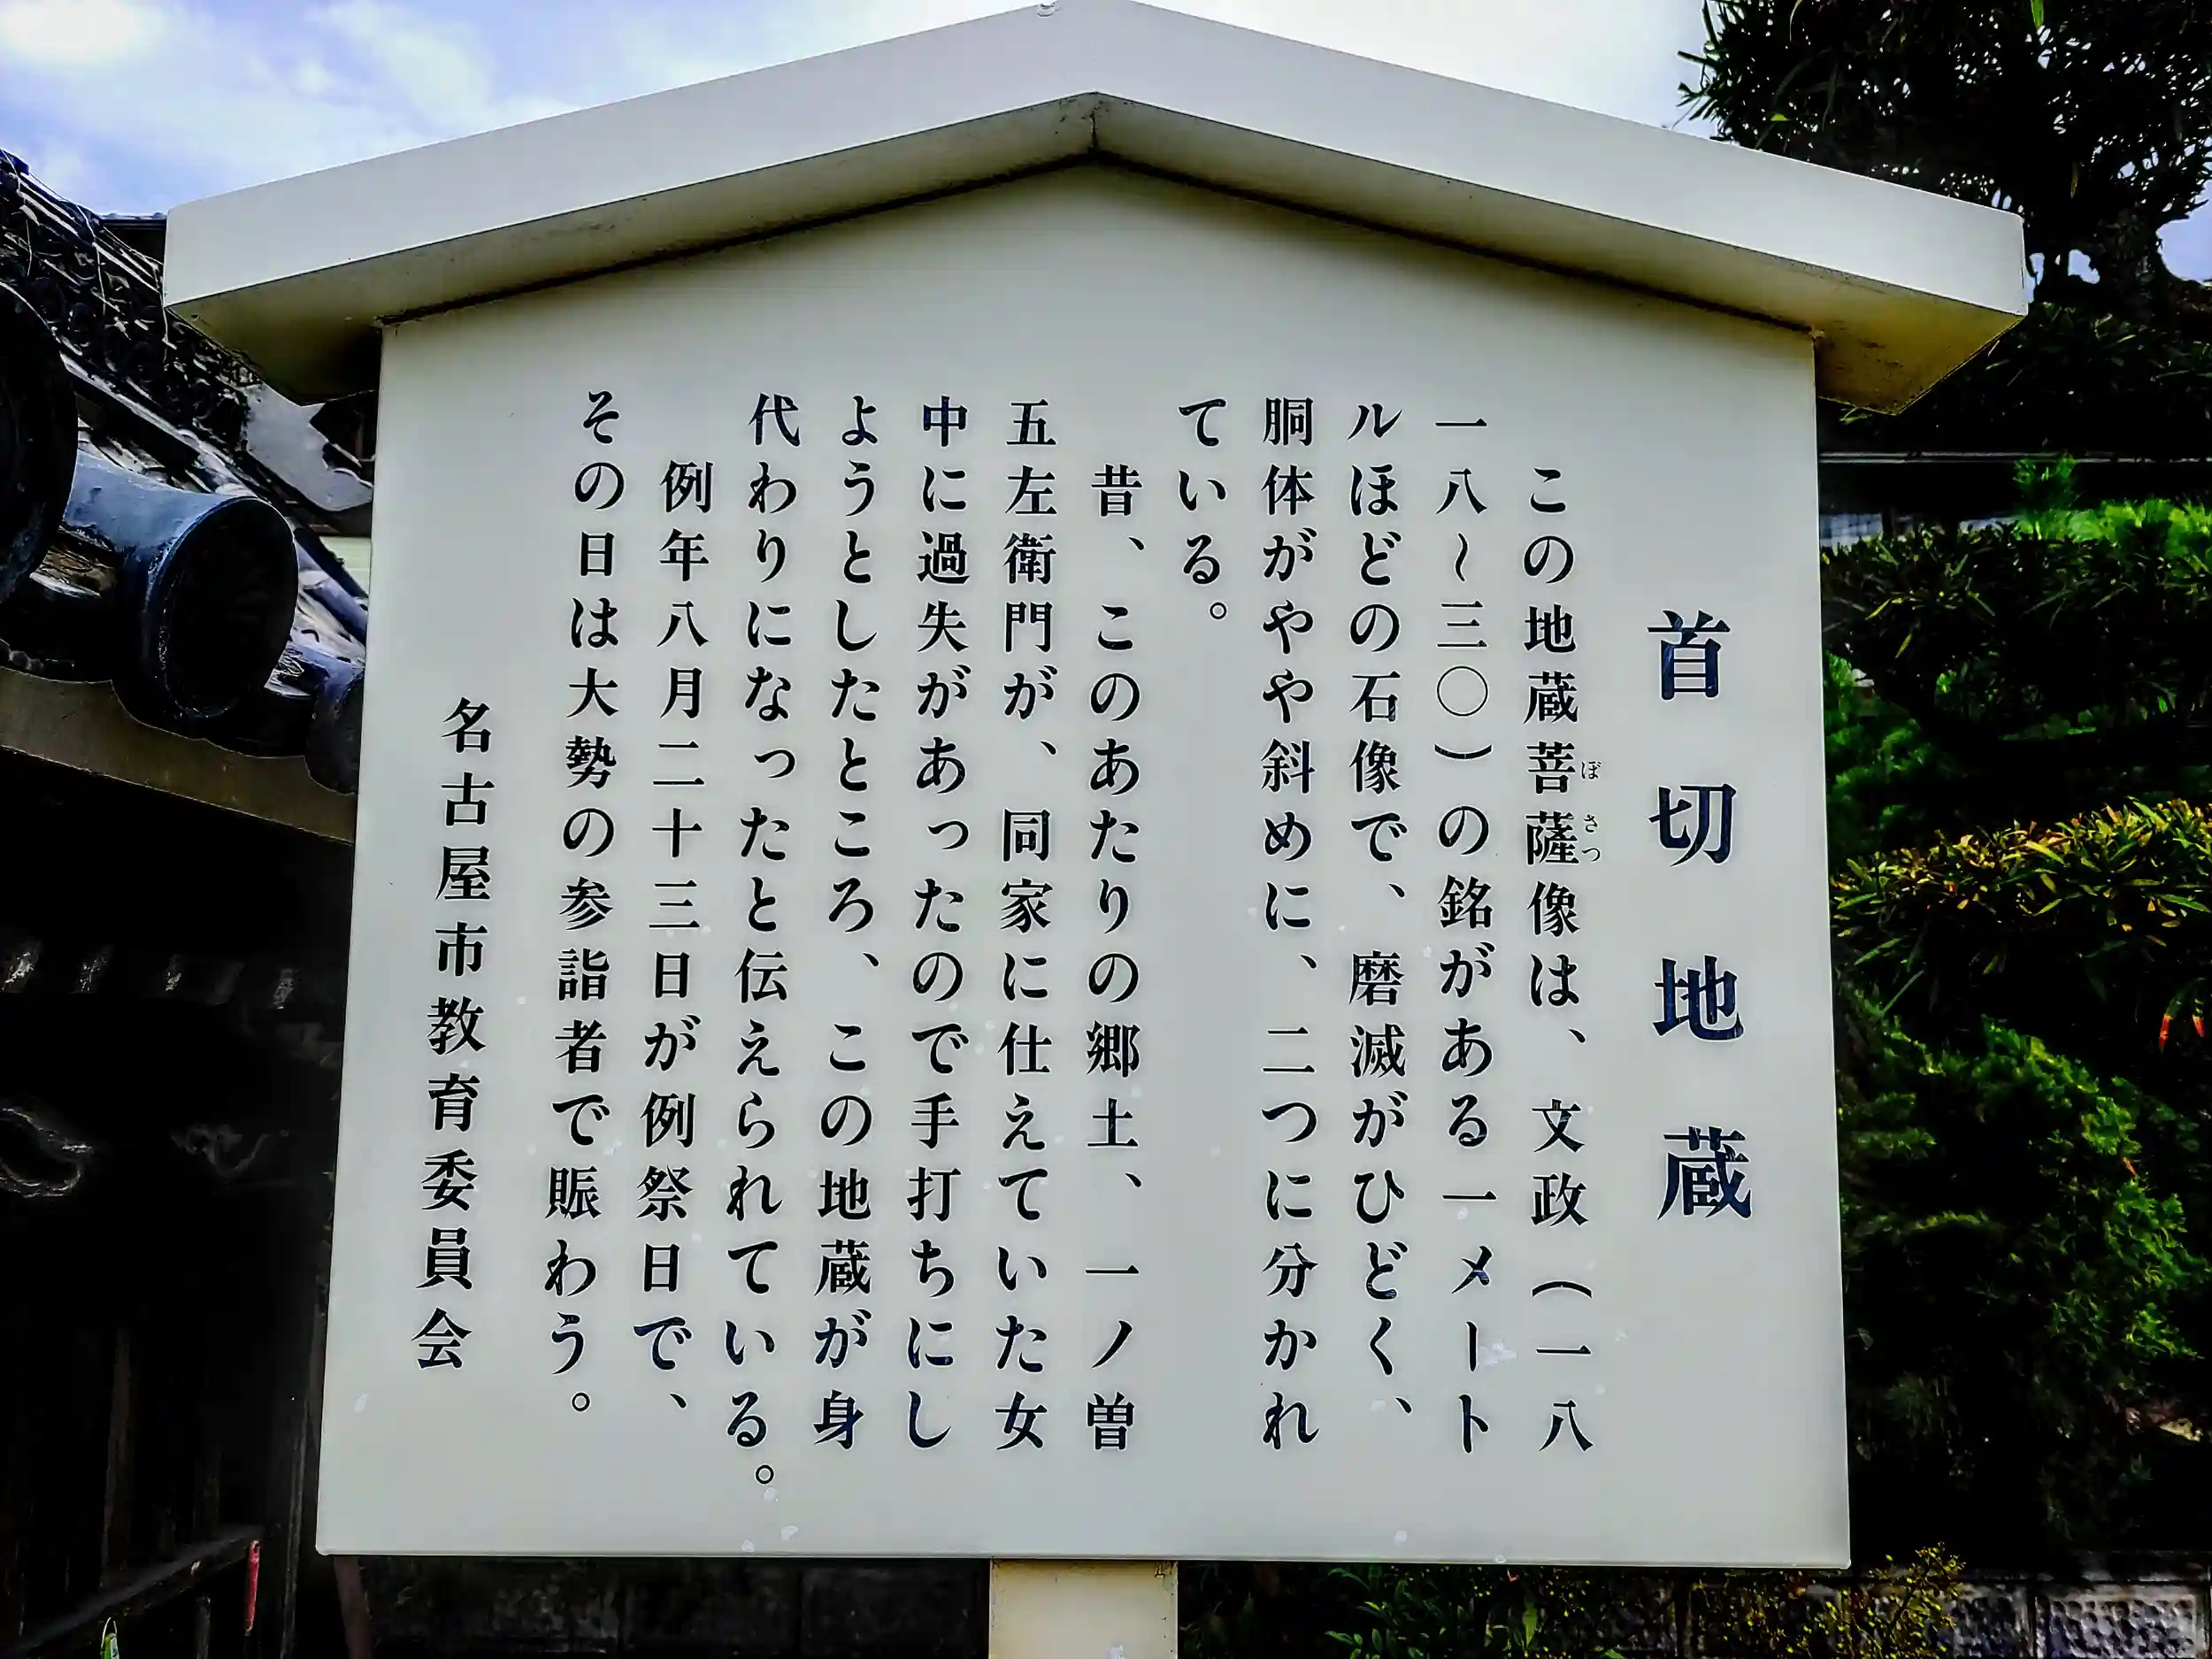 首切地蔵
この地蔵菩薩像は、文政(一八
ぼさつ
一八〜三〇)の銘がある一メート
ルほどの石像で、磨滅がひどく、
胴体がやや斜めに、二つに分かれ
ている。
昔、このあたりの郷土、一ノ曽
五左衛門が、同家に仕えていた女
中に過失があったので手打ちにし
ようとしたところ、この地蔵が身
代わりになったと伝えられている。
例年八月二十三日が例祭日で、
その日は大勢の参詣者で賑わう。
名古屋市教育委員会